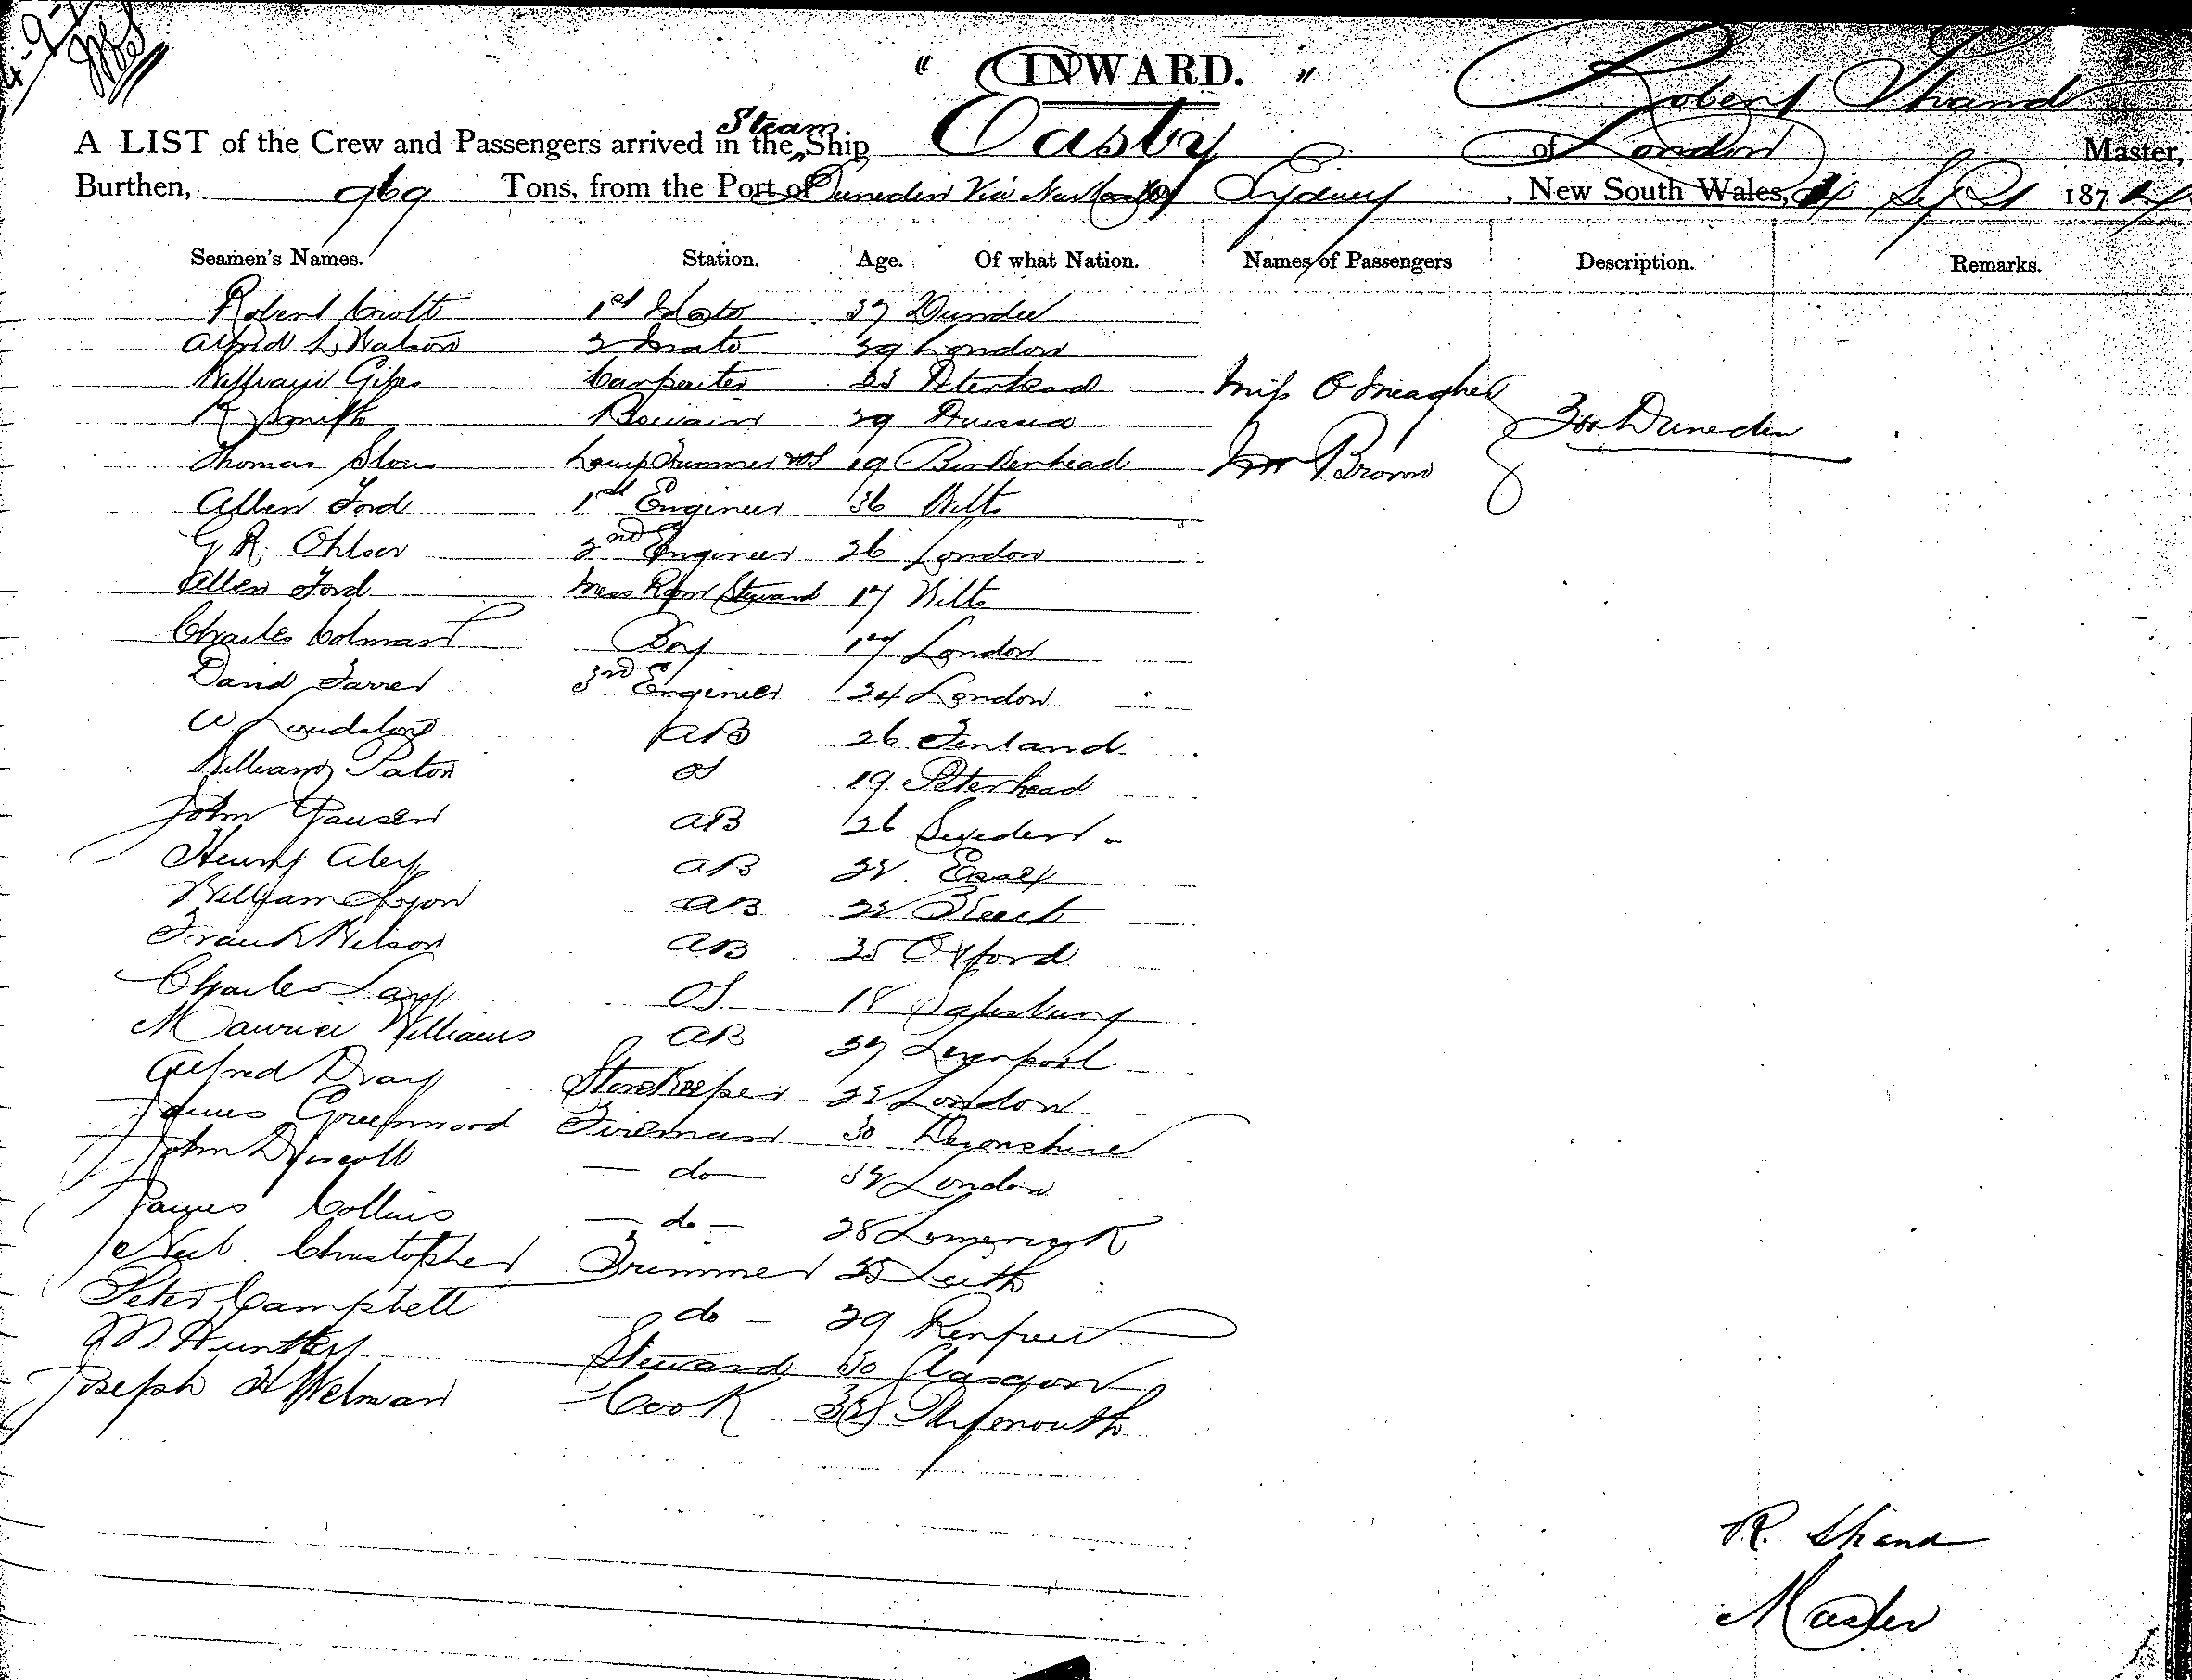 " INWARD. "
Robert Shand
A LIST of the Crew and Passengers arrived in the Steam Ship Easby of London Master,
Burthen, 969 Tons, from the Port of Dunedin Via Newcastle Sydney, New South Wales, 4 Sept 1874
Seamen's Names. Station. Age. Of what Nation. Names of Passengers Description. Remarks.
Robert 1st Mate 37 Dundee
Alfred L Watson 2 Mate 39 London
William Carpenter 23 Peterhead Miss O'Meagher
R Smith 29 For Dunedin
Thomas Lamp Trimmer & OS 19 Birkenhead Mr Brown
Allen Ford 1st Engineer 36 Wilts
G R. Ohlser 2nd Engineer 26 London
Allen Ford Mess Room Steward 17 Wilts
Charles Colman Boy 17 London
David Farrer 3rd Engineer 24 London
W AB 26 Finland
William Paton OS 19 Peterhead
John AB 26 Sweden
Henry Aley AB 22 Essex
William Lyon AB 22
Frank Wilson AB 25 Oxford
Charles OS 18 Salisbury
Maurice Williams AB 27 Liverpool
Alfred Dray Storekeeper 22 London
James Greenwood Fireman 30 Devonshire
John Driscoll - do - 32 London
James Collins - do - 28 Limerick
Neil Christopher Trimmer 25 Leith
Peter Campbell - do - 29 Renfrew
M Huntley Steward 30 Glasgow
Joseph H Welman Cook 32 Plymouth
R. Shand
Master